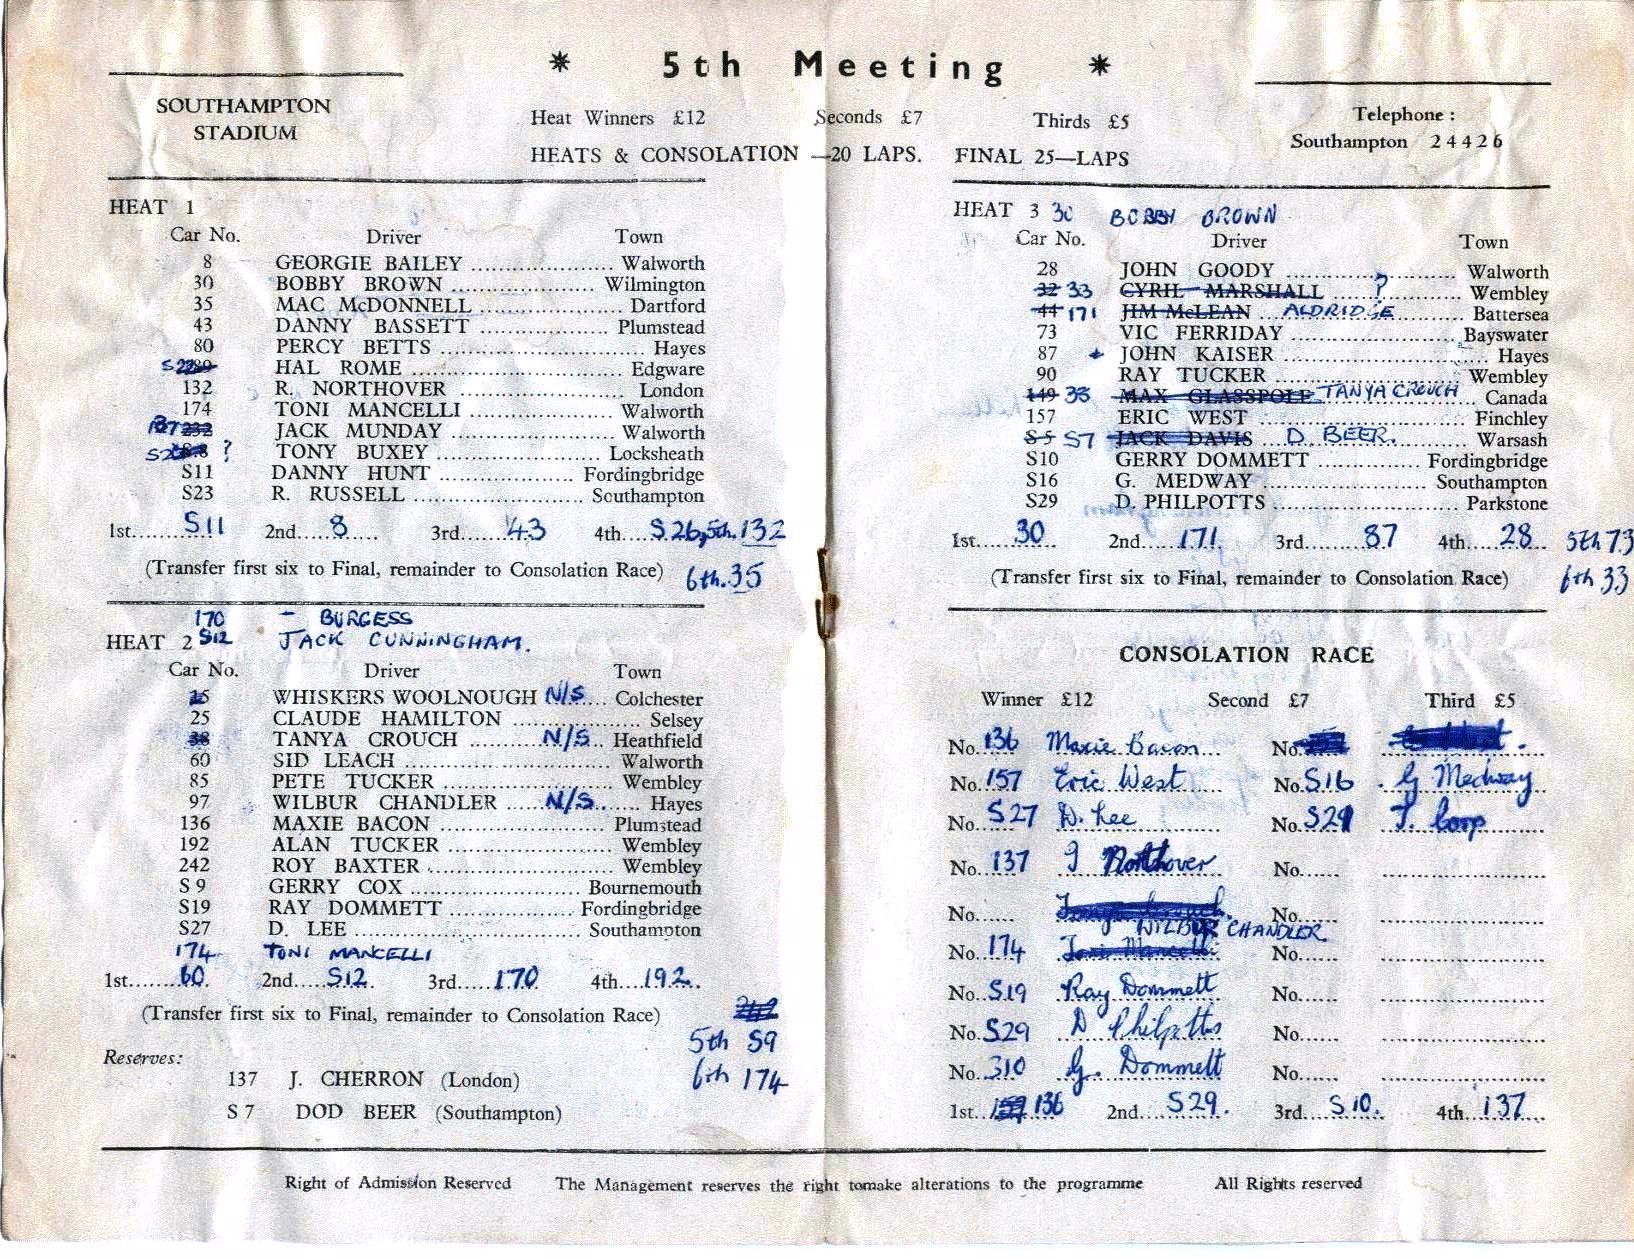 * 5th Meeting *
SOUTHAMPTON
STADIUM
Heat Winners £12 Seconds £7 Thirds £5
HEATS & CONSOLATION —20 LAPS. FINAL 25—LAPS
Telephone :
Southampton 24426
HEAT 1
Car No. Driver Town
8 GEORGIE BAILEY Walworth
30 BOBBY BROWN Wilmington
35 MAC McDONNELL Dartford
43 DANNY BASSETT Plumstead
80 PERCY BETTS Hayes
HAL ROME Edgware
132 R. NORTHOVER London
174 TONI MANCELLI Walworth
JACK MUNDAY Walworth
? TONY BUXEY Locksheath
S11 DANNY HUNT Fordingbridge
S23 R. RUSSELL Southampton
1st S11 2nd 8 3rd 43 4th S26, 5th. 132
(Transfer first six to Final, remainder to Consolation Race) 6th. 35
170 – BURGESS
HEAT 2 S12 JACK CUNNINGHAM.
Car No. Driver Town
WHISKERS WOOLNOUGH N/S Colchester
25 CLAUDE HAMILTON Selsey
38 TANYA CROUCH N/S Heathfield
60 SID LEACH Walworth
85 PETE TUCKER Wembley
97 WILBUR CHANDLER N/S Hayes
136 MAXIE BACON Plumstead
192 ALAN TUCKER Wembley
242 ROY BAXTER Wembley
S 9 GERRY COX Bournemouth
S19 RAY DOMMETT Fordingbridge
S27 D. LEE Southampton
174 TONI MANCELLI
1st 60. 2nd S12. 3rd 170 4th 192.
(Transfer first six to Final, remainder to Consolation Race)
5th S9
6th 174
Reserves:
137 J. CHERRON (London)
S 7 DOD BEER (Southampton)
HEAT 3 30 BOBBY BROWN
Car No. Driver Town
28 JOHN GOODY Walworth
32 33 CYRIL MARSHALL ? Wembley
44 171 JIM McLEAN ALDRIDGE Battersea
73 VIC FERRIDAY Bayswater
87 JOHN KAISER Hayes
90 RAY TUCKER Wembley
149 38 MAX GLASSPOLE TANYA CROUCH Canada
157 ERIC WEST Finchley
S 5 S7 JACK DAVIS D. BEER. Warsash
S10 GERRY DOMMETT Fordingbridge
S16 G. MEDWAY Southampton
S29 D. PHILPOTTS Parkstone
1st 30 2nd 171 3rd 87 4th 28 5th 73
(Transfer first six to Final, remainder to Consolation Race) 6th 33
CONSOLATION RACE
Winner £12 Second £7 Third £5
No. 136 Maxie Bacon No.
No. 157 Eric West No. S16 G Medway
No. S27 D. Lee No. S29 T. Corp
No. 137 J Northover No.
No. No.
WILBUR CHANDLER
No. 174 Toni Mancelli No.
No. S19 Ray Dommett No.
No. S29 D Philpotts No.
No. 310 G. Dommett No.
1st 136 2nd S29. 3rd S10. 4th 137
Right of Admission Reserved The Management reserves the right tomake alterations to the programme All Rights reserved